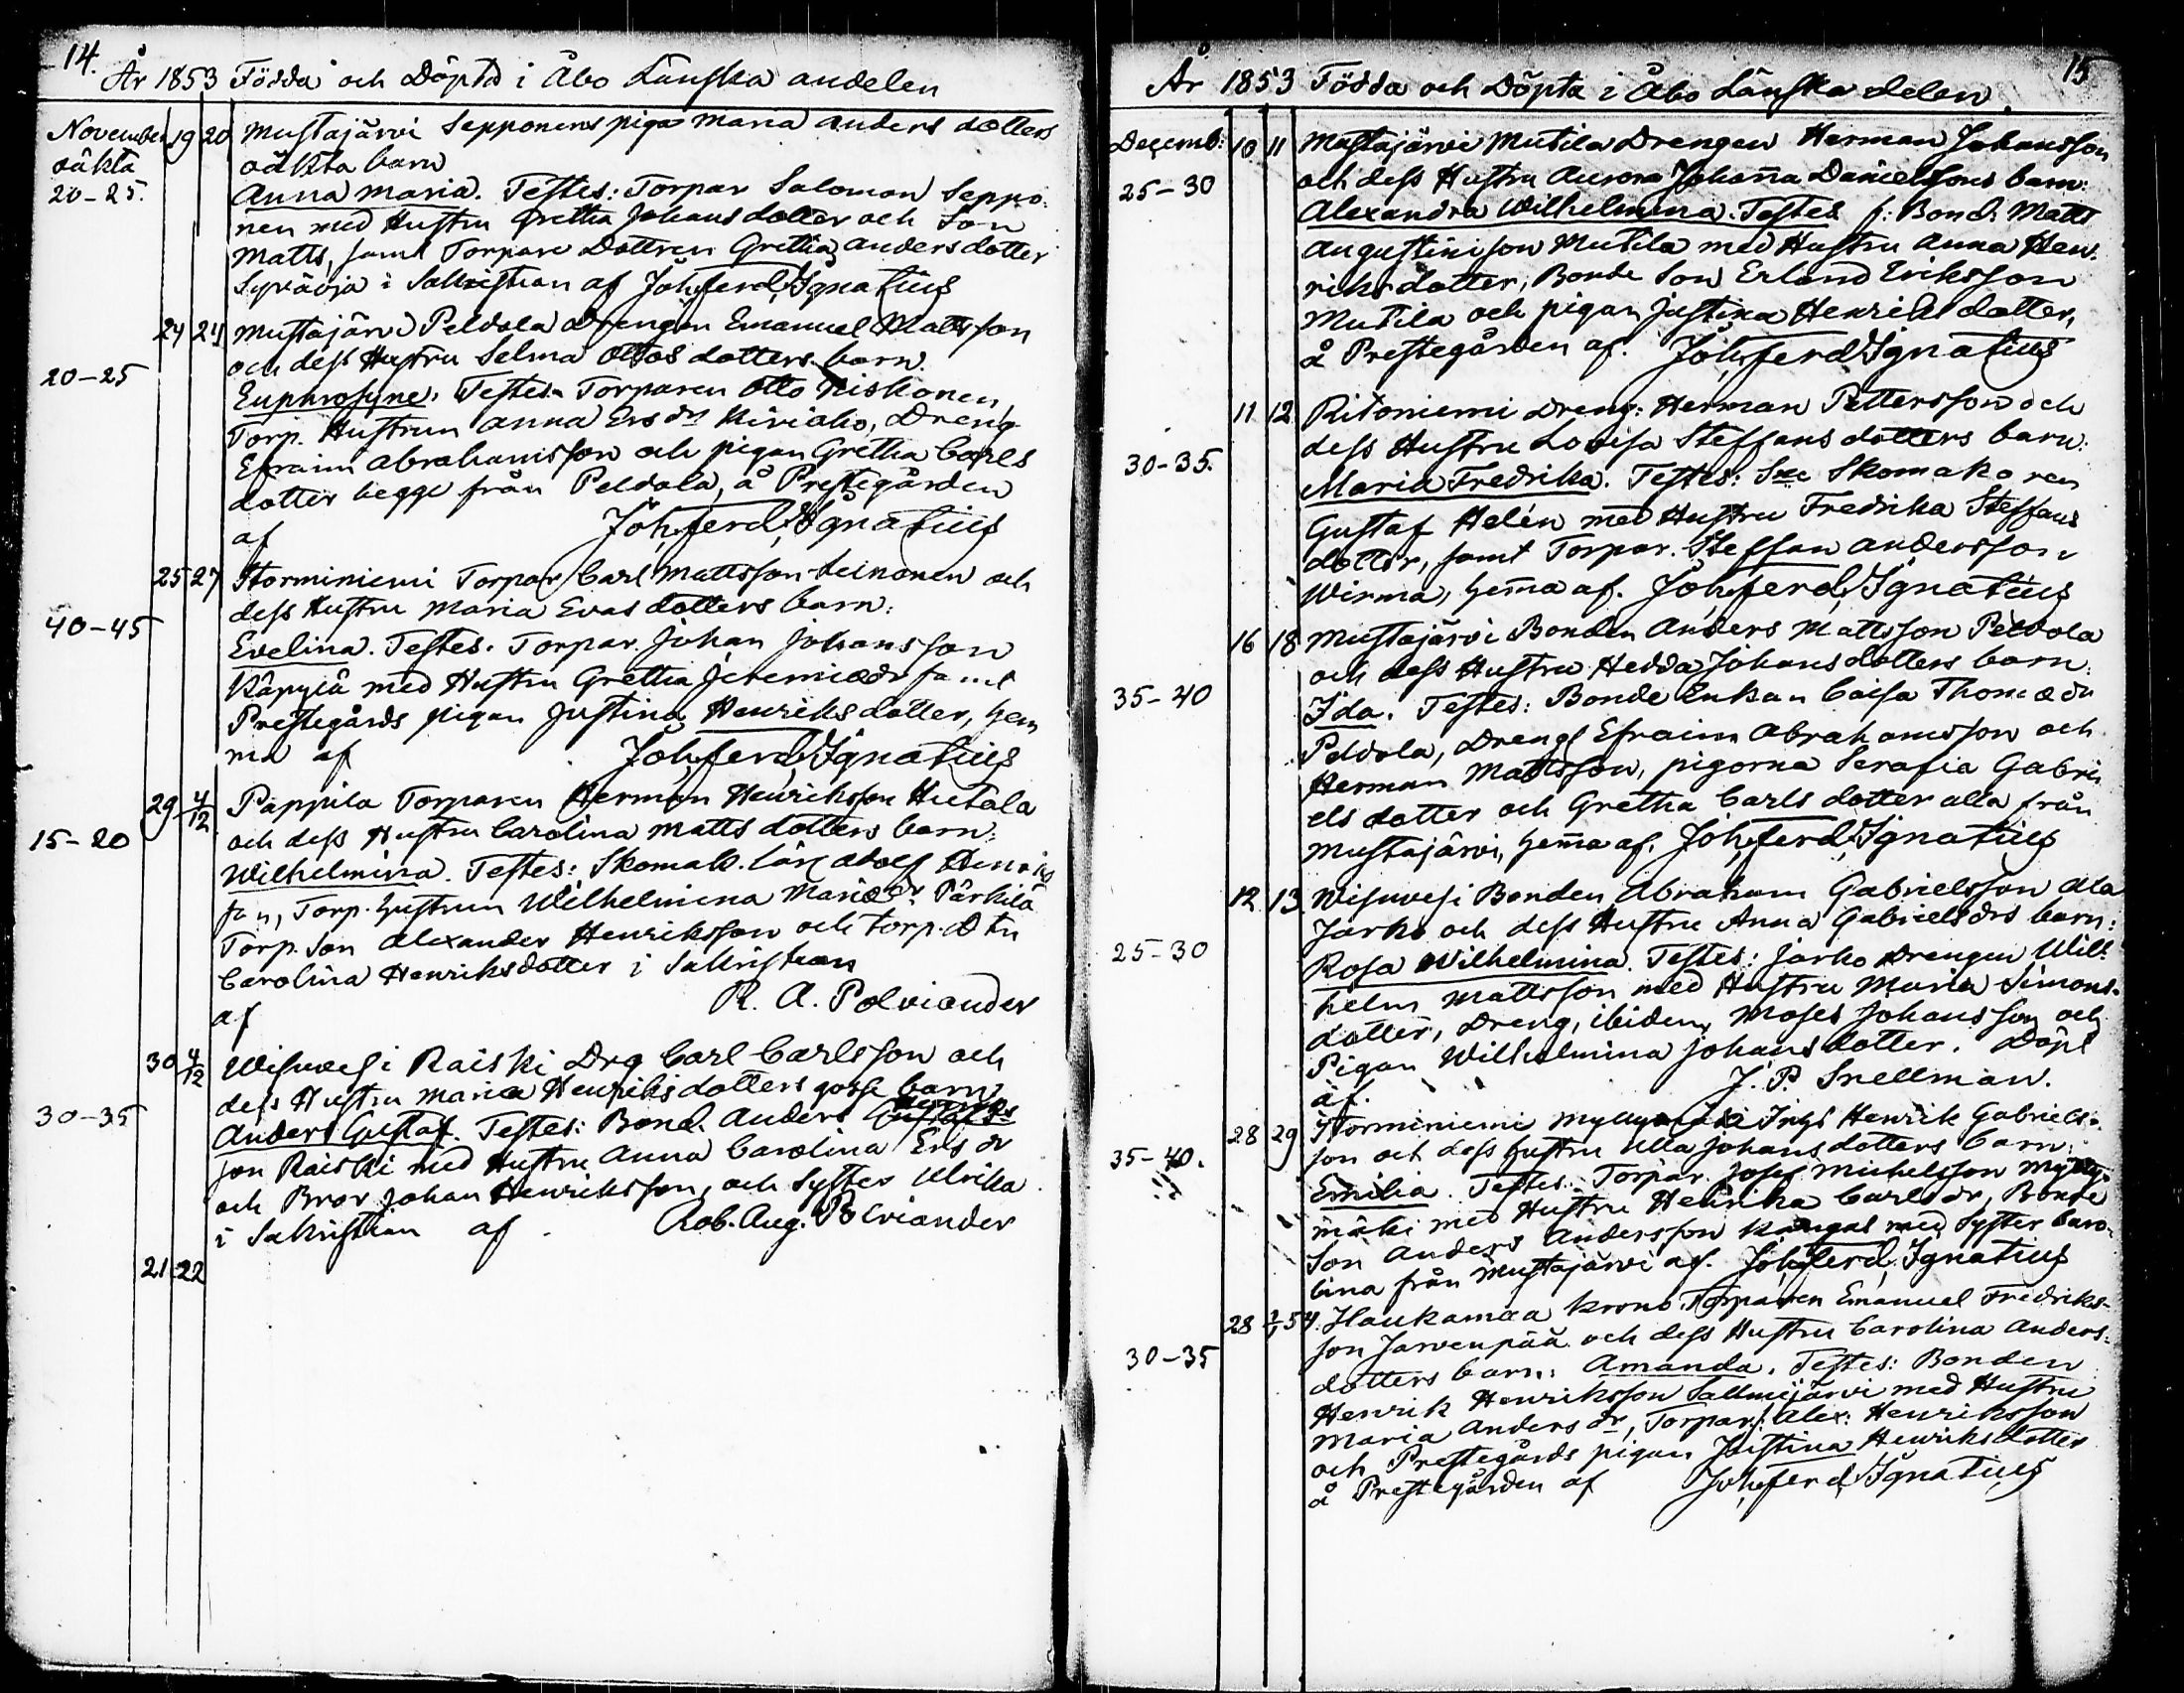 14.
År 1853 Födda och Döpta i Åbo Länska andelen
November 19 20 Mustajärvi Sepponens piga Maria Anders dotters
oäkta oäkta barn
20-25. Anna Maria. Testes: Torpar Salomon Seppo-
nen med Hustru Gretha Johans dotter och Son
Matts, samt Torpare Dottren Gretha Anders dotter
i Sakristian af Joh. Ferd. Ignatius
24 24 Mustajärvi Peldola Drengen Emanuel Mattsson
och dess Hustru Selma Ottos dotters barn.
20-25 Euphrosyne. Testes. Torparen Otto Niskonen,
Torp. Hustrun Anna Ers dr Kiviaho, Dreng
Efraim Abrahamsson och pigan Gretha Carls
dotter begge från Peldola, å Prestegården
af Joh. Ferd. Ignatius
25 27 Storminiemi Torpar Carl Mattsson Leinonen och
dess Hustru Maria Evas dotters barn:
40-45 Evelina. Testes. Torpar. Johan Johansson
Käpylä med Hustru Gretha Jeremiædr samt
Prestegårds pigan Justina Henriks dotter, hem
ma af Joh. Ferd. Ignatius
29 4/12 Pappila Torparen Herman Henriksson Hietala
och dess Hustru Carolina Matts dotters barn:
15-20 Wilhelmina. Testes: Skomak. lärl Adolf Henriks
son, Torp. hustrun Wilhelmina Mariædr Pärkilä
Torp. Son Alexander Henriksson och torp. Dtn
Carolina Henriksdotter i Sakristian
af R. A. Polviander
30 4/12 Wisuvesi Raiski Drg Carl Carlsson och
dess Hustru Maria Henriks dotters gosse barn
30-35 Anders Gustaf. Testes: Bond. Anders Henriks
son Raiski med Hustru Anna Carolina Ers dr
och Bror Johan Henriksson, och Syster Ulrika
i Sakristian af Rob. Aug. Polviander
21 22
15
År 1853 Födda och Döpta i Åbo Länska delen.
Decemb: 10 11 Mustajärvi Mutila Drengen Herman Johansson
25-30 och dess Hustru Aurora Johanna Danielssons barn:
Alexandra Wilhelmina. Testes f: Bond. Matts
Augustinison Mutila med Hustru Anna Hen-
riks dotter, Bonde Son Erland Eriksson
Mutila och pigan Justina Henriks dotter,
å Prestegården af. Joh. Ferd. Ignatius
11 12 Ritoniemi Dreng: Herman Pettersson och
dess Hustru Lovisa Steffans dotters barn:
30-35. Maria Fredrika. Testes: Skomakaren
Gustaf Helén med Hustru Fredrika Steffans
dotter, samt Torpar. Steffan Andersson
Wirma, hemma af. Joh. Ferd. Ignatius
16 18 Mustajärvi Bonden Anders Mattsson Peldola
och dess Hustru Hedda Johans dotters barn:
35-40 Ida. Testes: Bonde Enkan Caisa Thomædr
Peldola, Drengl Efraim Abrahamsson och
Herman Mattsson, pigorna Serafia Gabri
els dotter och Gretha Carls dotter alla från
Mustajärvi, hemma af. Joh. Ferd. Ignatius
12 13 Wisuvesi Bonden Abraham Gabrielsson Ala
Jarko och dess Hustru Anna Gabrielsdrs barn:
25-30 Rosa Wilhelmina. Testes: Jarko Drengen Wil-
helm Mattsson med Hustru Maria Simons-
dotter, Dreng, ibidem, Moses Johansson och
Pigan Wilhelmina Johans dotter. Döpt
af. J. P. Snellman.
28 29 Storminiemi Myllymäki Inhs Henrik Gabriels-
son och dess hustru Ulla Johans dotters barn:
35-40. Emilia. Testes. Torpar Josef Michelsson Mylly-
mäki med Hustru Henrika Carls dr, Bonde
Son Anders Andersson Kangas med Syster Caro-
lina från Mustajärvi af. Joh. Ferd. Ignatius
28 54. Haukamaa krono Torparen Emanuel Fredriks-
son Jarvenpää och dess Hustru Carolina Anders-
30-35 dotters barn: Amanda. Testes: Bonden
Henrik Henriksson Sallmijärvi med Hustru
Maria Anders dr, Torpar. Alex: Henriksson
och Prestegårds pigan Justina Henriks dotter
å Prestegården af Joh. Ferd. Ignatius